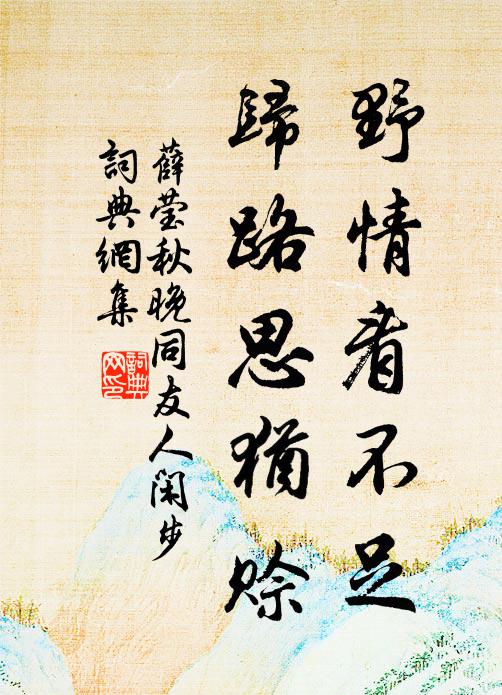 野情看不足
歸路思猶賒
薛莹秋晚同友人閑步
詞典網集
詞典
网印